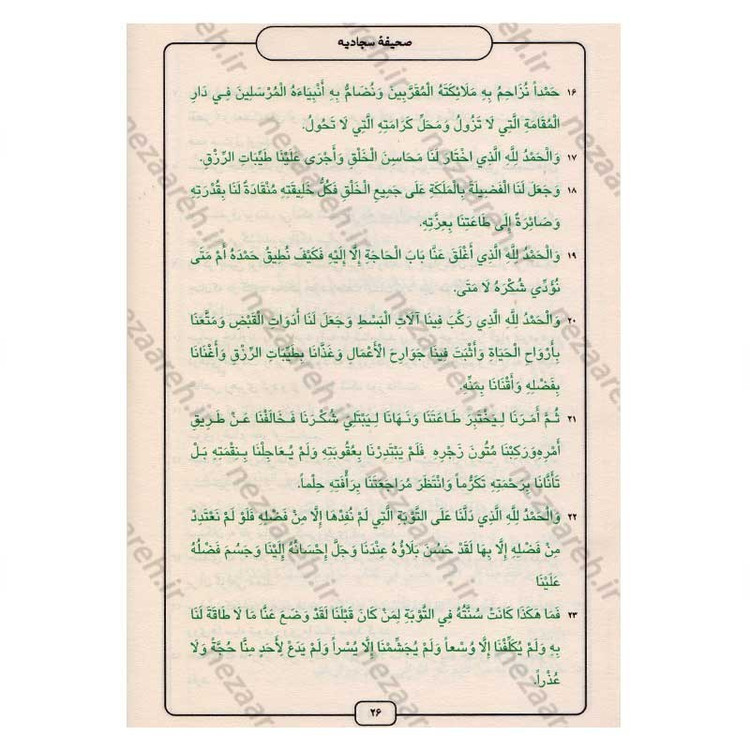 صحیفهٔ سجادیه
۱۶ حَمْداً نُزَاحِمُ بِهِ مَلَائِكَتَهُ الْمُقَرَّبِينَ وَنُضَامُّ بِهِ أَنْبِيَاءَهُ الْمُرْسَلِينَ فِي دَارِ
الْمُقَامَةِ الَّتِي لَا تَزُولُ وَمَحَلِّ كَرَامَتِهِ الَّتِي لَا تَحُولُ.
۱۷ وَالْحَمْدُ لِلَّهِ الَّذِي اخْتَارَ لَنَا مَحَاسِنَ الْخَلْقِ وَأَجْرَى عَلَيْنَا طَيِّبَاتِ الرِّزْقِ.
۱۸ وَجَعَلَ لَنَا الْفَضِيلَةَ بِالْمَلَكَةِ عَلَى جَمِيعِ الْخَلْقِ فَكُلُّ خَلِيقَتِهِ مُنْقَادَةٌ لَنَا بِقُدْرَتِهِ
وَصَائِرَةٌ إِلَى طَاعَتِنَا بِعِزَّتِهِ.
۱۹ وَالْحَمْدُ لِلَّهِ الَّذِي أَغْلَقَ عَنَّا بَابَ الْحَاجَةِ إِلَّا إِلَيْهِ فَكَيْفَ نُطِيقُ حَمْدَهُ أَمْ مَتَى
نُؤَدِّي شُكْرَهُ لَا مَتَى.
۲۰ وَالْحَمْدُ لِلَّهِ الَّذِي رَكَّبَ فِينَا آلَاتِ الْبَسْطِ وَجَعَلَ لَنَا أَدَوَاتِ الْقَبْضِ وَمَتَّعَنَا
بِأَرْوَاحِ الْحَيَاةِ وَأَثْبَتَ فِينَا جَوَارِحَ الْأَعْمَالِ وَغَذَّانَا بِطَيِّبَاتِ الرِّزْقِ وَأَغْنَانَا
بِفَضْلِهِ وَأَقْنَانَا بِمَنِّهِ.
۲۱ ثُمَّ أَمَرَنَا لِيَخْتَبِرَ طَاعَتَنَا وَنَهَانَا لِيَبْتَلِيَ شُكْرَنَا فَخَالَفْنَا عَنْ طَرِيقِ
أَمْرِهِ وَرَكِبْنَا مُتُونَ زَجْرِهِ فَلَمْ يَبْتَدِرْنَا بِعُقُوبَتِهِ وَلَمْ يُعَاجِلْنَا بِنِقْمَتِهِ بَلْ
تَأَنَّانَا بِرَحْمَتِهِ تَكَرُّماً وَانْتَظَرَ مُرَاجَعَتَنَا بِرَأْفَتِهِ حِلْماً.
۲۲ وَالْحَمْدُ لِلَّهِ الَّذِي دَلَّنَا عَلَى التَّوْبَةِ الَّتِي لَمْ نُفِدْهَا إِلَّا مِنْ فَضْلِهِ فَلَوْ لَمْ نَعْتَدِدْ
مِنْ فَضْلِهِ إِلَّا بِهَا لَقَدْ حَسُنَ بَلَاؤُهُ عِنْدَنَا وَجَلَّ إِحْسَانُهُ إِلَيْنَا وَجَسُمَ فَضْلُهُ
عَلَيْنَا
۲۳ فَمَا هَكَذَا كَانَتْ سُنَّتُهُ فِي التَّوْبَةِ لِمَنْ كَانَ قَبْلَنَا لَقَدْ وَضَعَ عَنَّا مَا لَا طَاقَةَ لَنَا
بِهِ وَلَمْ يُكَلِّفْنَا إِلَّا وُسْعاً وَلَمْ يُجَشِّمْنَا إِلَّا يُسْراً وَلَمْ يَدَعْ لِأَحَدٍ مِنَّا حُجَّةً وَلَا
عُذْراً.
۲۶
nezaareh.ir